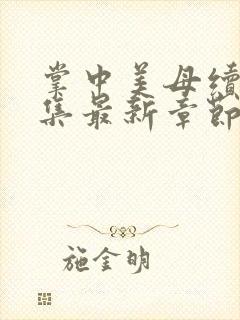 掌中美母续
集最新章節
施金明